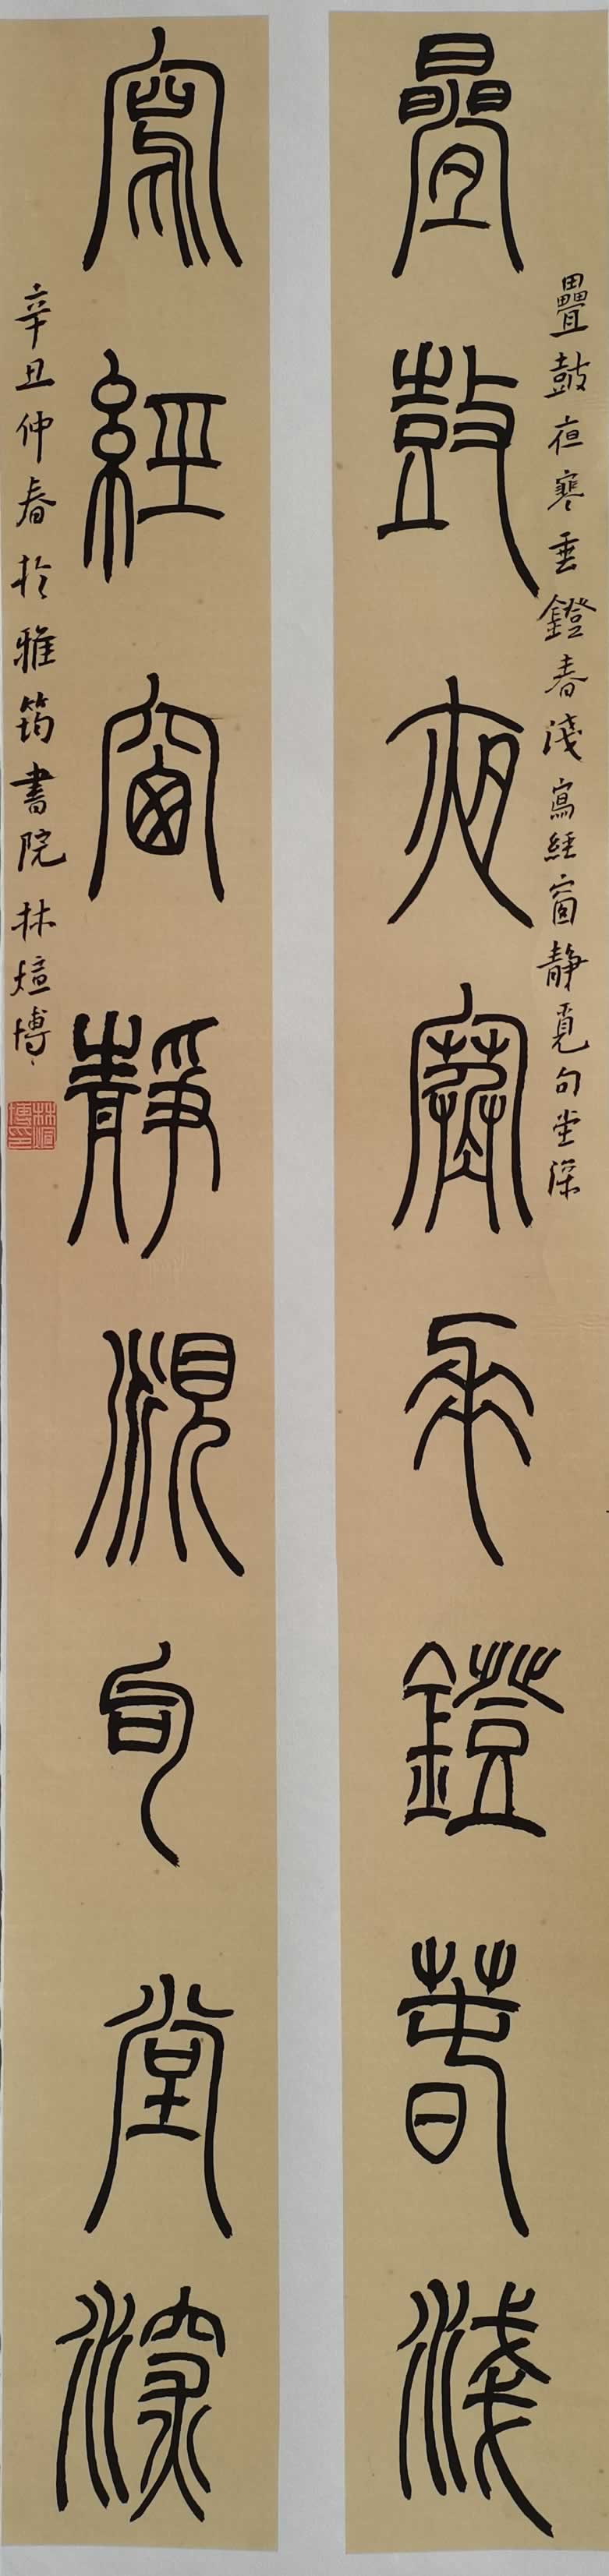 疊鼓夜寒垂鐙春淺寫經窗靜覓句堂深
疊鼓夜寒垂鐙春淺
寫經窗靜覓句堂深
辛丑仲春於雅筠書院林煊博
林煊博印